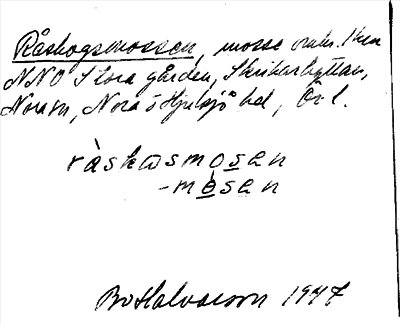 Råskogsmossen, mosse omkr. 1 km
NNO Stora gården, Skrikarhyttan,
Nora sn, Nora o Hjulsjö bd, Ör. l.
ràskωsmosen
-mòsen
Bo Halvarson 1947